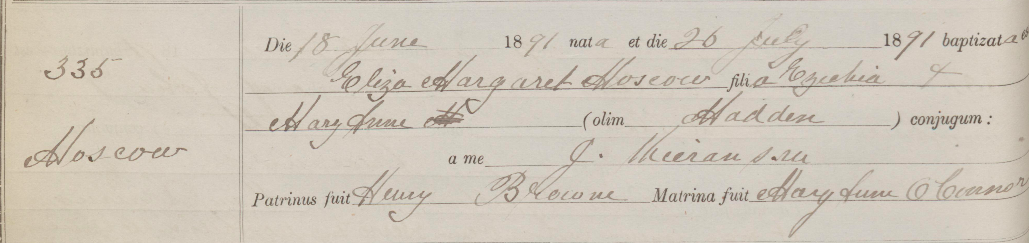 335
Moscow
Die 18 June 1891 nata et die 26 July 1891 baptizata e
Eliza Margaret Moscow filia Ezechia &
Mary Anne (olim Madden ) conjugum :
a me J. Kieran
Patrinus fuit Henry Browne Matrina fuit Mary Anne O Connor